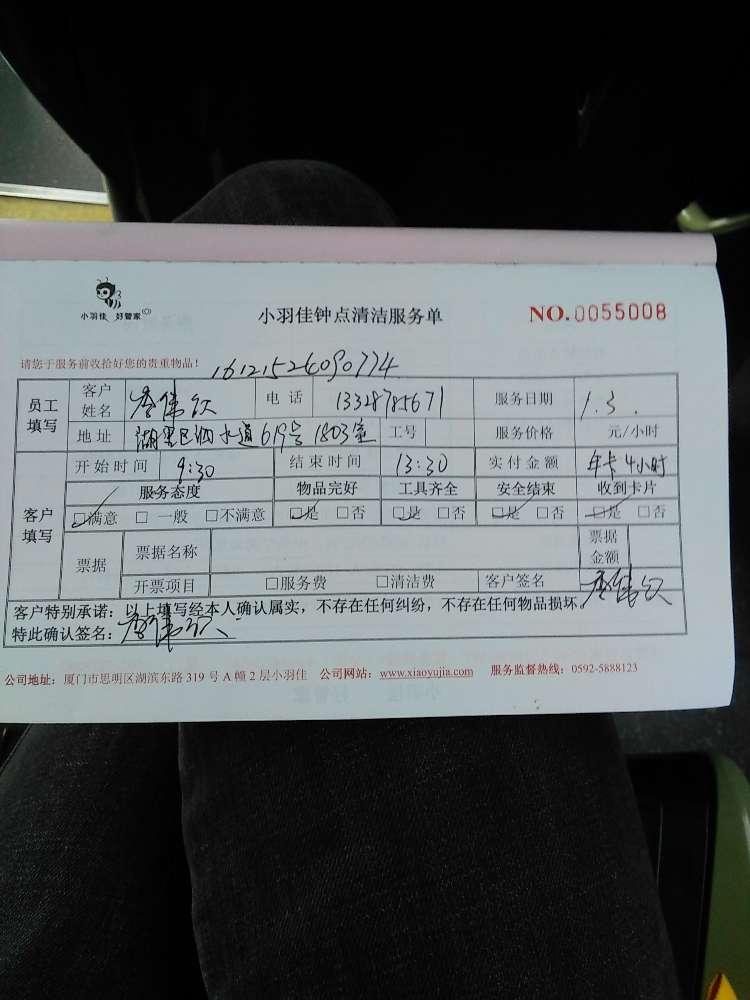 小羽佳 好管家
小羽佳钟点清洁服务单
NO.0055008
请您于服务前收拾好您的贵重物品！
员工填写 客户姓名 电话 13328785671 服务日期 1.3.
地址 湖里区泗水道619号1803室 工号 服务价格 元/小时
客户填写 开始时间 9:30 结束时间 13:30 实付金额 年卡4小时
服务态度 物品完好 工具齐全 安全结束 收到卡片
☑满意 □一般 □不满意 ☑是 □否 ☑是 □否 ☑是 □否 ☑是 □否
票据 票据名称 票据金额
开票项目 □服务费 □清洁费 客户签名
客户特别承诺：以上填写经本人确认属实，不存在任何纠纷，不存在任何物品损坏，
特此确认签名：
公司地址：厦门市思明区湖滨东路319号A幢2层小羽佳 公司网站：www.xiaoyujia.com 服务监督热线：0592-5888123